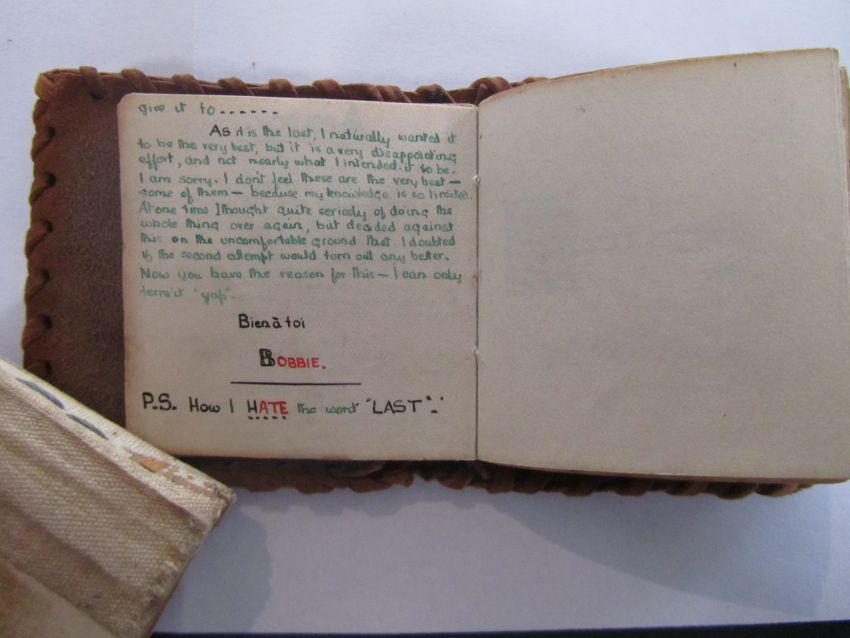 give it to ......
As it is the last, I naturally wanted it
to be the very best, but it is a very disappointing
effort, and not nearly what I intended it to be.
I am sorry. I don't feel these are the very best —
some of them — because my knowledge is so limited.
At one time I thought quite seriously of doing the
whole thing over again, but decided against
this on the uncomfortable ground that I doubted
if the second attempt would turn out any better.
Now you have the reason for this — I can only
term it "yap".
Bien à toi
BOBBIE.
P.S. How I HATE the word "LAST".